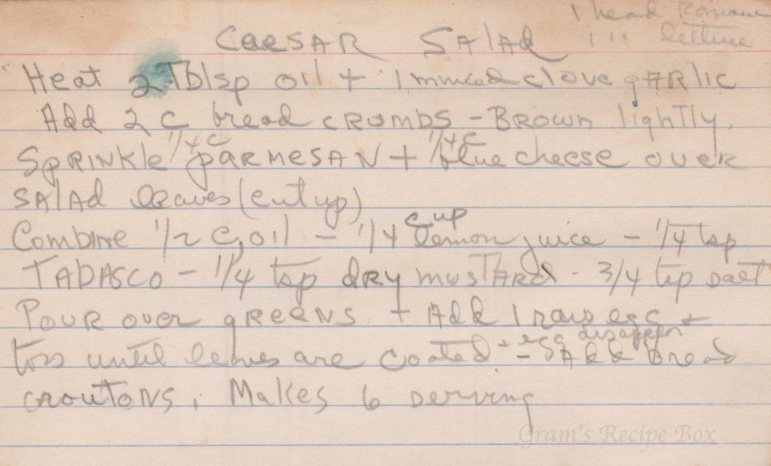 1 head Romaine
lettuce
CAESAR SALAD
Heat 2 Tblsp oil + 1 minced clove gARlic
Add 2 c bread cRUMBS - BROWN lightly.
SPRINKle 1/4 c PARMESAN + 1/4 c blue cheese over
SAlAd leaves (cut up)
Combine 1/2 c, oil - 1/4 cup lemon juice - 1/4 tsp
TABASCO - 1/4 tsp dRy MUSTARd - 3/4 tsp salt
POUR over gREENS + Add 1 raw egg +
toss until leaves are coated + egg disappear - Add Bread
cRoutoNS. Makes 6 serving
Gram's Recipe Box